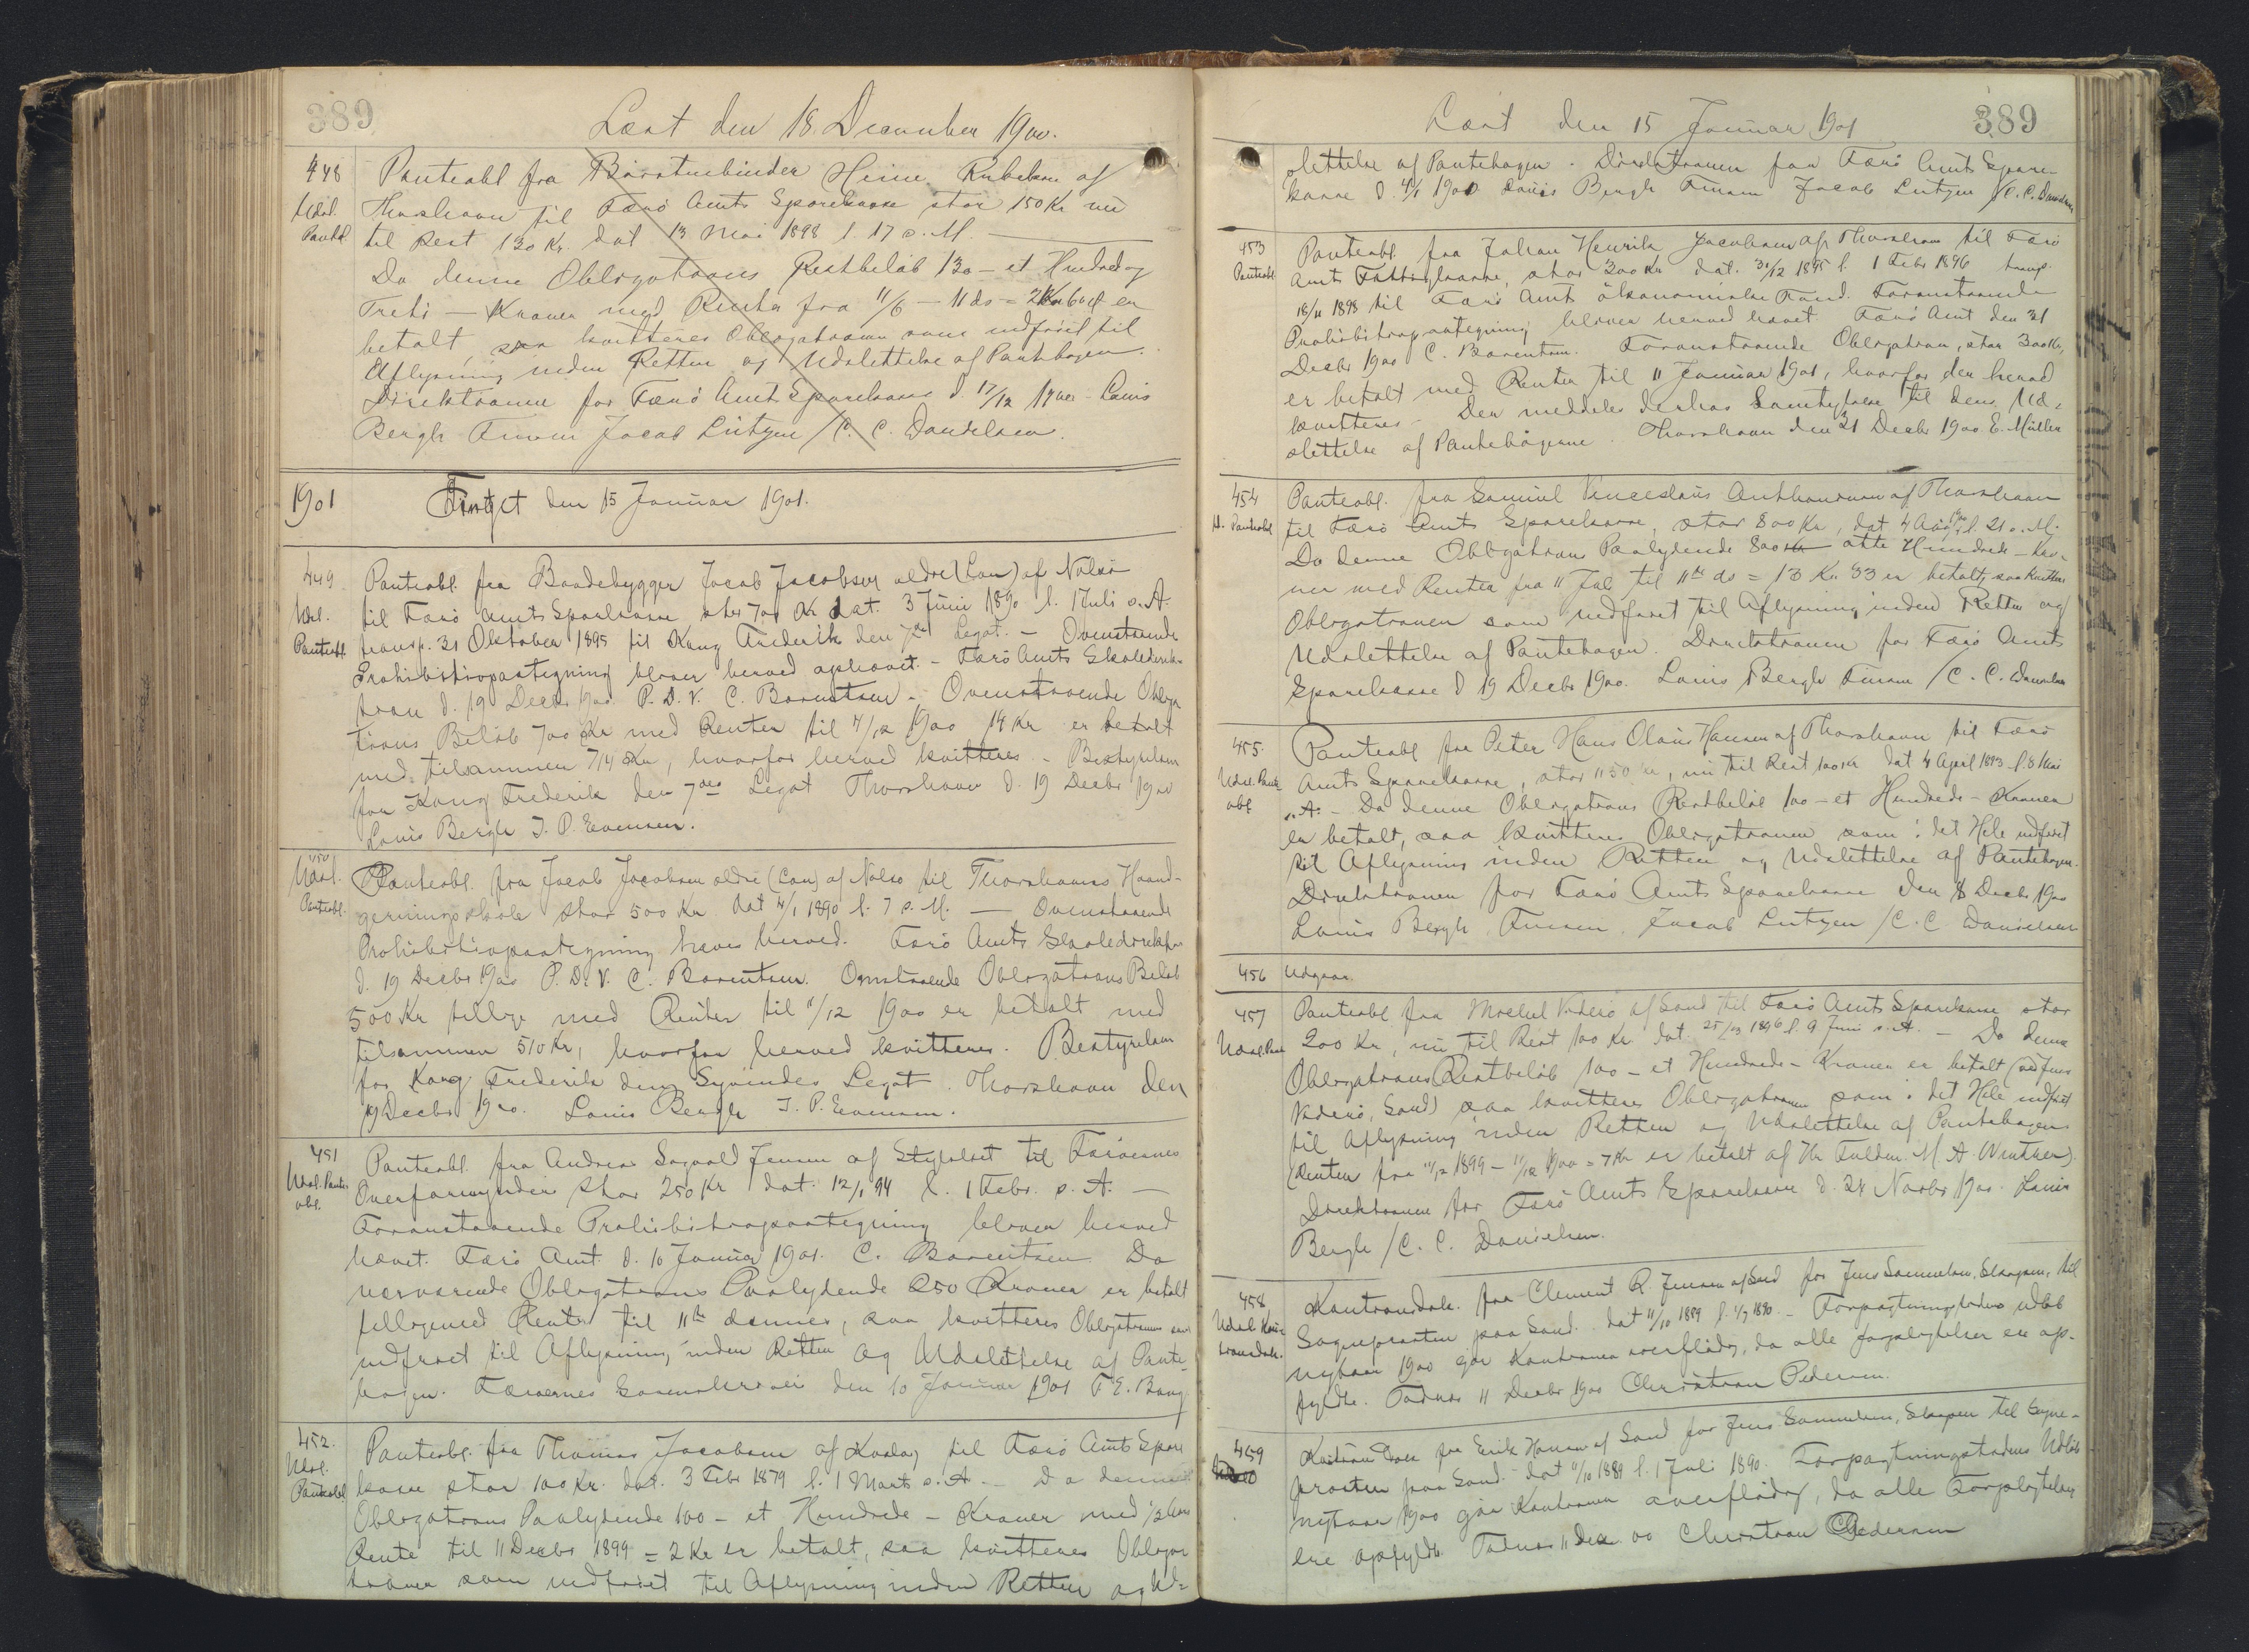 389
Læst den 18 December 1900.
448 Panteobl fra Børstenbinder Heine Rubeksen af
Udsl. Thorshavn til Færø Amts Sparekasse stor 150 Kr nu
Pantobl til Rest 130 Kr. dat 13 Mai 1898 l 17 s. M. —
Da denne Obligations Restbeløb 130 – et Hundred og
Treti – Kroner med Renter fra 11/6 – 11 ds = 2 Kr 60 Ø er
betalt, saa kvitteres Obligationen som indfriet til
Aflysning inden Retten og Udslettelse af Pantebogen.
Direktionen for Færø Amts Sparekasse d. 17/12 1900 Louis
Bergh Finsen Jacob Lützen / C. C. Danielsen.
1901 Tinget den 15 Januar 1901.
449. Panteobl. fra Baadebygger Jacob Jacobsen ældre (Lon) af Nolsø
Udsl. til Færø Amts Sparekasse stor 700 Kr dat. 3 Juni 1890 l. 1 Juli s. A.
Panteobl. transp. 31 Oktober 1895 til Kong Frederik den 7des Legat. – Ovenstaaende
Prohibitivpaategning bliver herved ophævet. – Færø Amts Skoledirek-
tion d. 19 Decbr 1900 P. D. V. C. Bærentsen. – Ovenstaaende Obliga
tions Beløb 700 Kr med Renter til 11/12 1900 14 Kr er betalt
med tilsammen 714 Kr, hvorfor herved kvitteres. – Bestyrelsen
for Kong Frederik den 7des Legat Thorshavn d. 19 Decbr 1900
Louis Bergh J. P. Evensen.
450 Panteobl. fra Jacob Jacobsen ældre (Lon) af Nolsø til Thorshavns Haand-
Udsl. gerningsskole stor 500 Kr dat 4/1 1890 l. 7 s. M. — Ovenstaaende
Panteobl. Prohibitivpaategning hæves herved. Færø Amts Skoledirektion
d. 19 Decbr 1900 P. D. V. C. Bærentsen. Ovenstaaende Obligations Beløb
500 Kr tillige med Renter til 11/12 1900 er betalt med
tilsammen 510 Kr, hvorfor herved kvitteres. Bestyrelsen
for Kong Frederik den Syvendes Legat. Thorshavn den
19 Decbr 1900. Louis Bergh J. P. Evensen.
451 Panteobl. fra Andreas Sigvald Jensen af til Færøernes
Udsl. Pante Overformynderi stor 250 Kr dat. 12/1 94 l. 1 Febr. s. A. —
obl. Foranstaaende Prohibitivpaategning bliver herved
hævet. Færø Amt d. 10 Januar 1901. C. Bærentsen. Da
nærværende Obligations Paalydende 250 Kroner er betalt
tilligemed Renter til 11te dennes, saa kvitteres Obligationen som
indfriet til Aflysning inden Retten og Udslettelse af Pante-
bogen. Færøernes Sorenskriveri den 10 Januar 1901 F. E. Bang
452. Panteobl. fra Thomas Jacobsen af til Færø Amts Spare
Udsl. kasse stor 100 Kr. dat. 3 Febr 1879 l. 1 Marts s. A. – Da denne
Panteobl Obligations Paalydende 100 – et Hundrede – Kroner med 1/2 Aars
Rente til 11 Decbr 1899 = 2 Kr er betalt, saa kvitteres Obliga-
tionen som indfriet til Aflysning inden Retten og Ud-
Læst den 15 Januar 1901 389
slettelse af Pantebogen. Direktionen for Færø Amts Spare-
kasse d. 4/1 1900 Louis Bergh Finsen Jacob Lützen / C. C. Danielsen
453 Panteobl. fra Johan Henrik Jacobsen af Thorshavn til Færø
Panteobl. Amts Fattigkasse, stor 300 Kr dat. 31/12 1895 l. 1 Febr 1896 transp.
18/11 1898 til Færø Amts økonomiske Fond. Foranstaaende
Prohibitivpaategning bliver herved hævet. Færø Amt den 21
Decbr 1900 C. Bærentsen. Foranstaaende Obligation, stor 300 Kr,
er betalt med Renter til 11 Januar 1901, hvorfor der herved
kvitteres. Der meddeles derhos Samtykke til dens Ud-
slettelse af Pantebøgerne. Thorshavn den 21 Decbr 1900 E. Müller
454 Panteobl. fra Samuel Venceslaus Anthoniussen af Thorshavn
U. Panteobl til Færø Amts Sparekasse, stor 800 Kr, dat 4 Aug 1900 l. 21 s. M.
Da denne Obligations Paalydende 800 otte Hundrede – Kro-
ner med Renter fra 11 Juli til 11te ds = 13 Kr 33 er betalt, saa kvitteres
Obligationen som indfriet til Aflysning inden Retten og
Udslettelse af Pantebogen. Direktionen for Færø Amts
Sparekasse d 19 Decbr 1900. Louis Bergh Finsen / C. C. Danielsen
455. Panteobl fra Peter Hans Olaus Hansen af Thorshavn til Færø
Udsl. Pante Amts Sparekasse, stor 1150 Kr, nu til Rest 100 Kr dat 4 April 1893 l. 8 Mai
obl s. A. – Da denne Obligations Restbeløb 100 – et Hundrede – Kroner
er betalt, saa kvitteres Obligationen som i det Hele indfriet
til Aflysning inden Retten og Udslettelse af Pantebogen.
Direktionen for Færø Amts Sparekasse den 8 Decbr 1900
Louis Bergh Finsen. Jacob Lützen / C. C. Danielsen
456 Udgaar.
457 Panteobl fra Michel Viderø af Sand til Færø Amts Sparekasse stor
Udsl. Pant 200 Kr, nu til Rest 100 Kr. dat. 25/03 1896 l. 9 Juni s. A. – Da denne
Obligations Restbeløb 100 – et Hundrede – Kroner er betalt (ved Jens
Viderø, Sand) saa kvitteres Obligationen som i det Hele indfriet
til Aflysning inden Retten og Udslettelse af Pantebogen
(Renten fra 11/12 1899 – 11/12 1900 = 7 Kr er betalt af Hr Fuldm. M. A. Winther)
Direktionen for Færø Amts Sparekasse d. 24 Novbr 1900. Louis
Bergh / C. C. Danielsen.
458 Kautionsdok. fra Clement R. Jensen af Sand for Jens Samuelsen, Skopen, til
Udsl. Kau- Sognepræsten paa Sand. dat 11/10 1889 l. 1/7 1890. – Forpagtningstidens Udløb
tionsdok. nytaar 1900 gør Kautionen overflødig, da alle forpligtelser er op-
fyldte. Todnæs 11 Decbr 1900 Christian Pedersen.
459 Kautions Dok fra Erik Hansen af Sand for Jens Samuelsen, Skopen til Sogne-
præsten paa Sand. dat 11/10 1889 l. 1 Juli 1890. Forpagtningstidens Udløb
nytaar 1900 gør Kautionen overflødig, da alle Forpligtelser
ere opfyldt. Todnæs 11 Dec. 00 Christian Pedersen